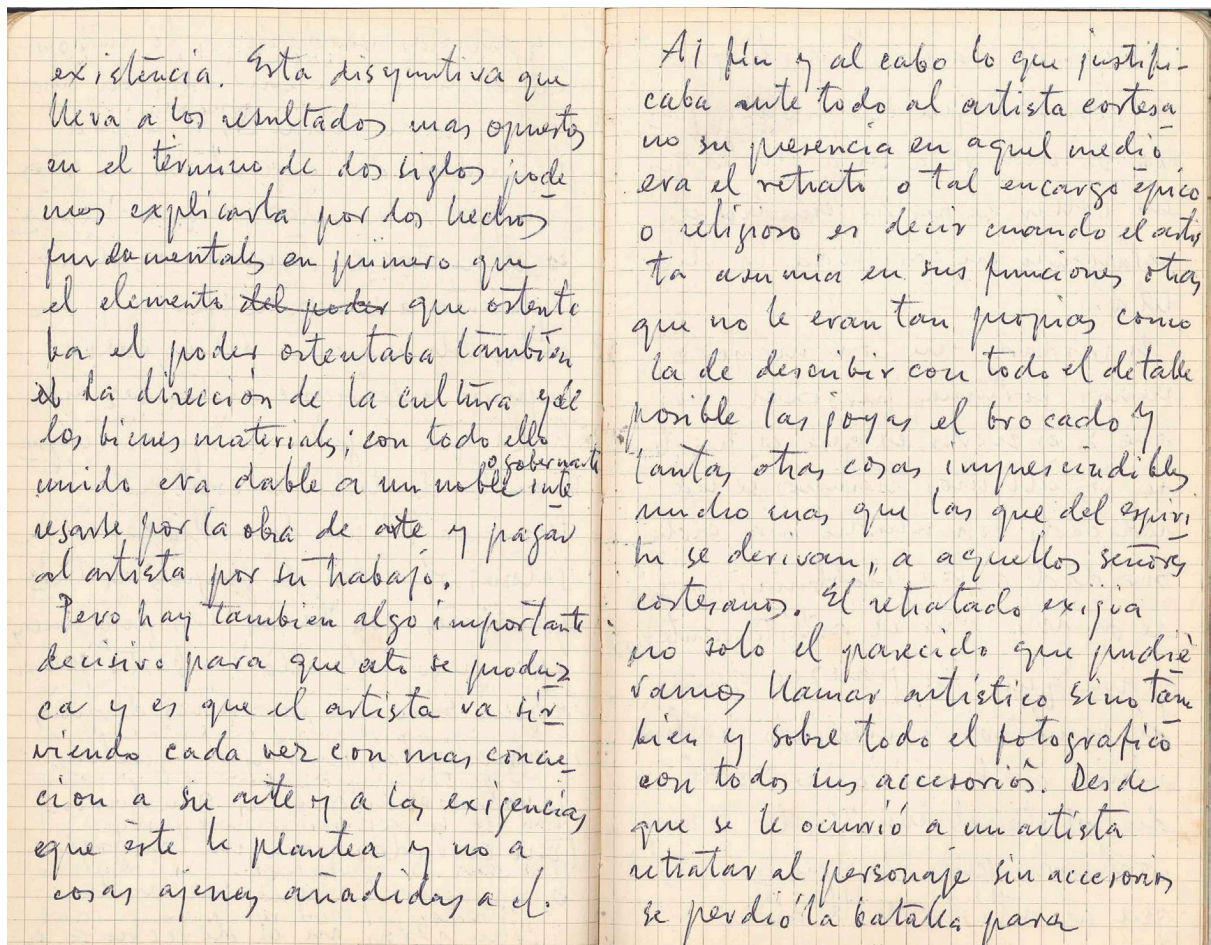 existencia. Esta disyuntiva que
lleva a los resultados mas opuestos
en el término de dos siglos pode
mos explicarla por dos hechos
fundamentales en primero que
el elemento del poder que ostenta
ba el poder ostentaba también
el la dirección de la cultura y de
los bienes materiales; con todo ello
o gobernante
unido era dable a un noble inte
resarse por la obra de arte y pagar
al artista por su trabajo.
Pero hay tambien algo importante
decisivo para que esto se produz
ca y es que el artista va sir
viendo cada vez con mas concie
cion a su arte y a las exigencias
que éste le plantea y no a
cosas ajenas añadidas a el.
Al fin y al cabo lo que justifi-
caba ante todo al artista cortesa
no su presencia en aquel medio
era el retrato o tal encargo épico
o religioso es decir cuando el artis
ta asumia en sus funciones otras
que no le eran tan propias como
la de describir con todo el detalle
posible las joyas el brocado y
tantas otras cosas imprescindibles
mucho mas que las que del espiri
tu se derivan, a aquellos señores
cortesanos. El retratado exigia
no solo el parecido que pudie
ramos llamar artístico sino tam
bien y sobre todo el fotografico
con todos sus accesorios. Desde
que se le ocurrió a un artista
retratar al personaje sin accesorios
se perdió la batalla para